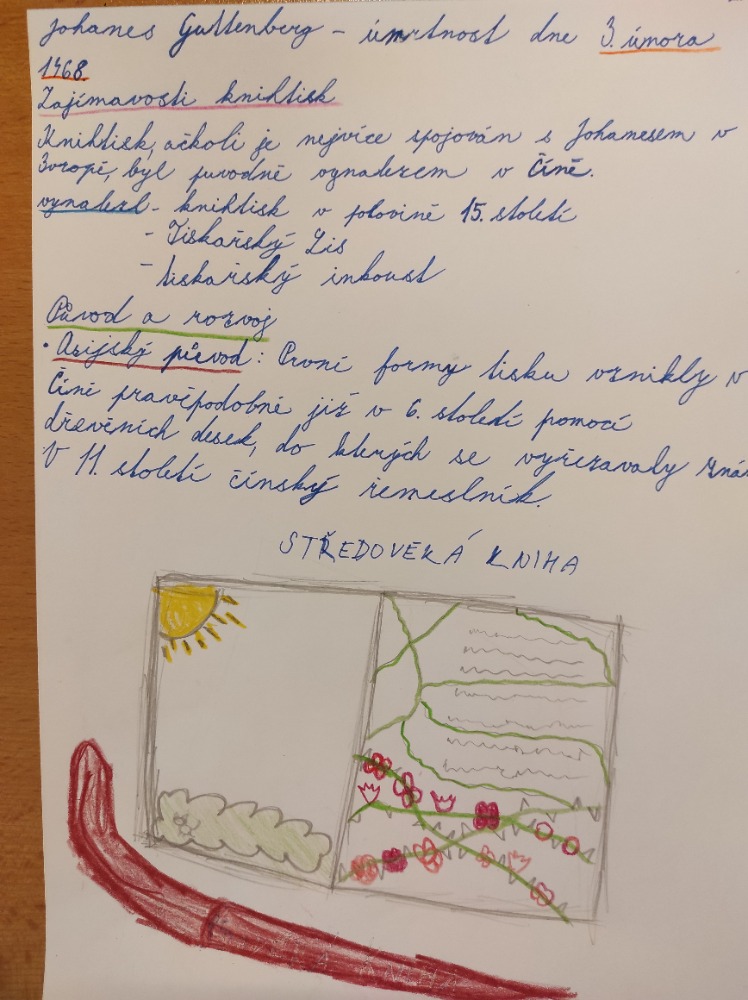 Johanes Guttenberg - úmrtnost dne 3. února
1468.
Zajímavosti knihtisk
Knihtisk, ačkoli je nejvíce spojován s Johanesem v
Evropě, byl puvodně vynalezem v Číně.
vynalezl - knihtisk v polovině 15. století
- Tiskařský Lis
- tiskařský inkoust
Původ a rozvoj
• Asijský původ: První formy tisku vznikly v
Číně pravěpodobně již v 6. století pomocí
dřevěních desek, do kterých se vyřezavaly zna
V 11. století čínský řemeslník.
STŘEDOVEKÁ KNIHA